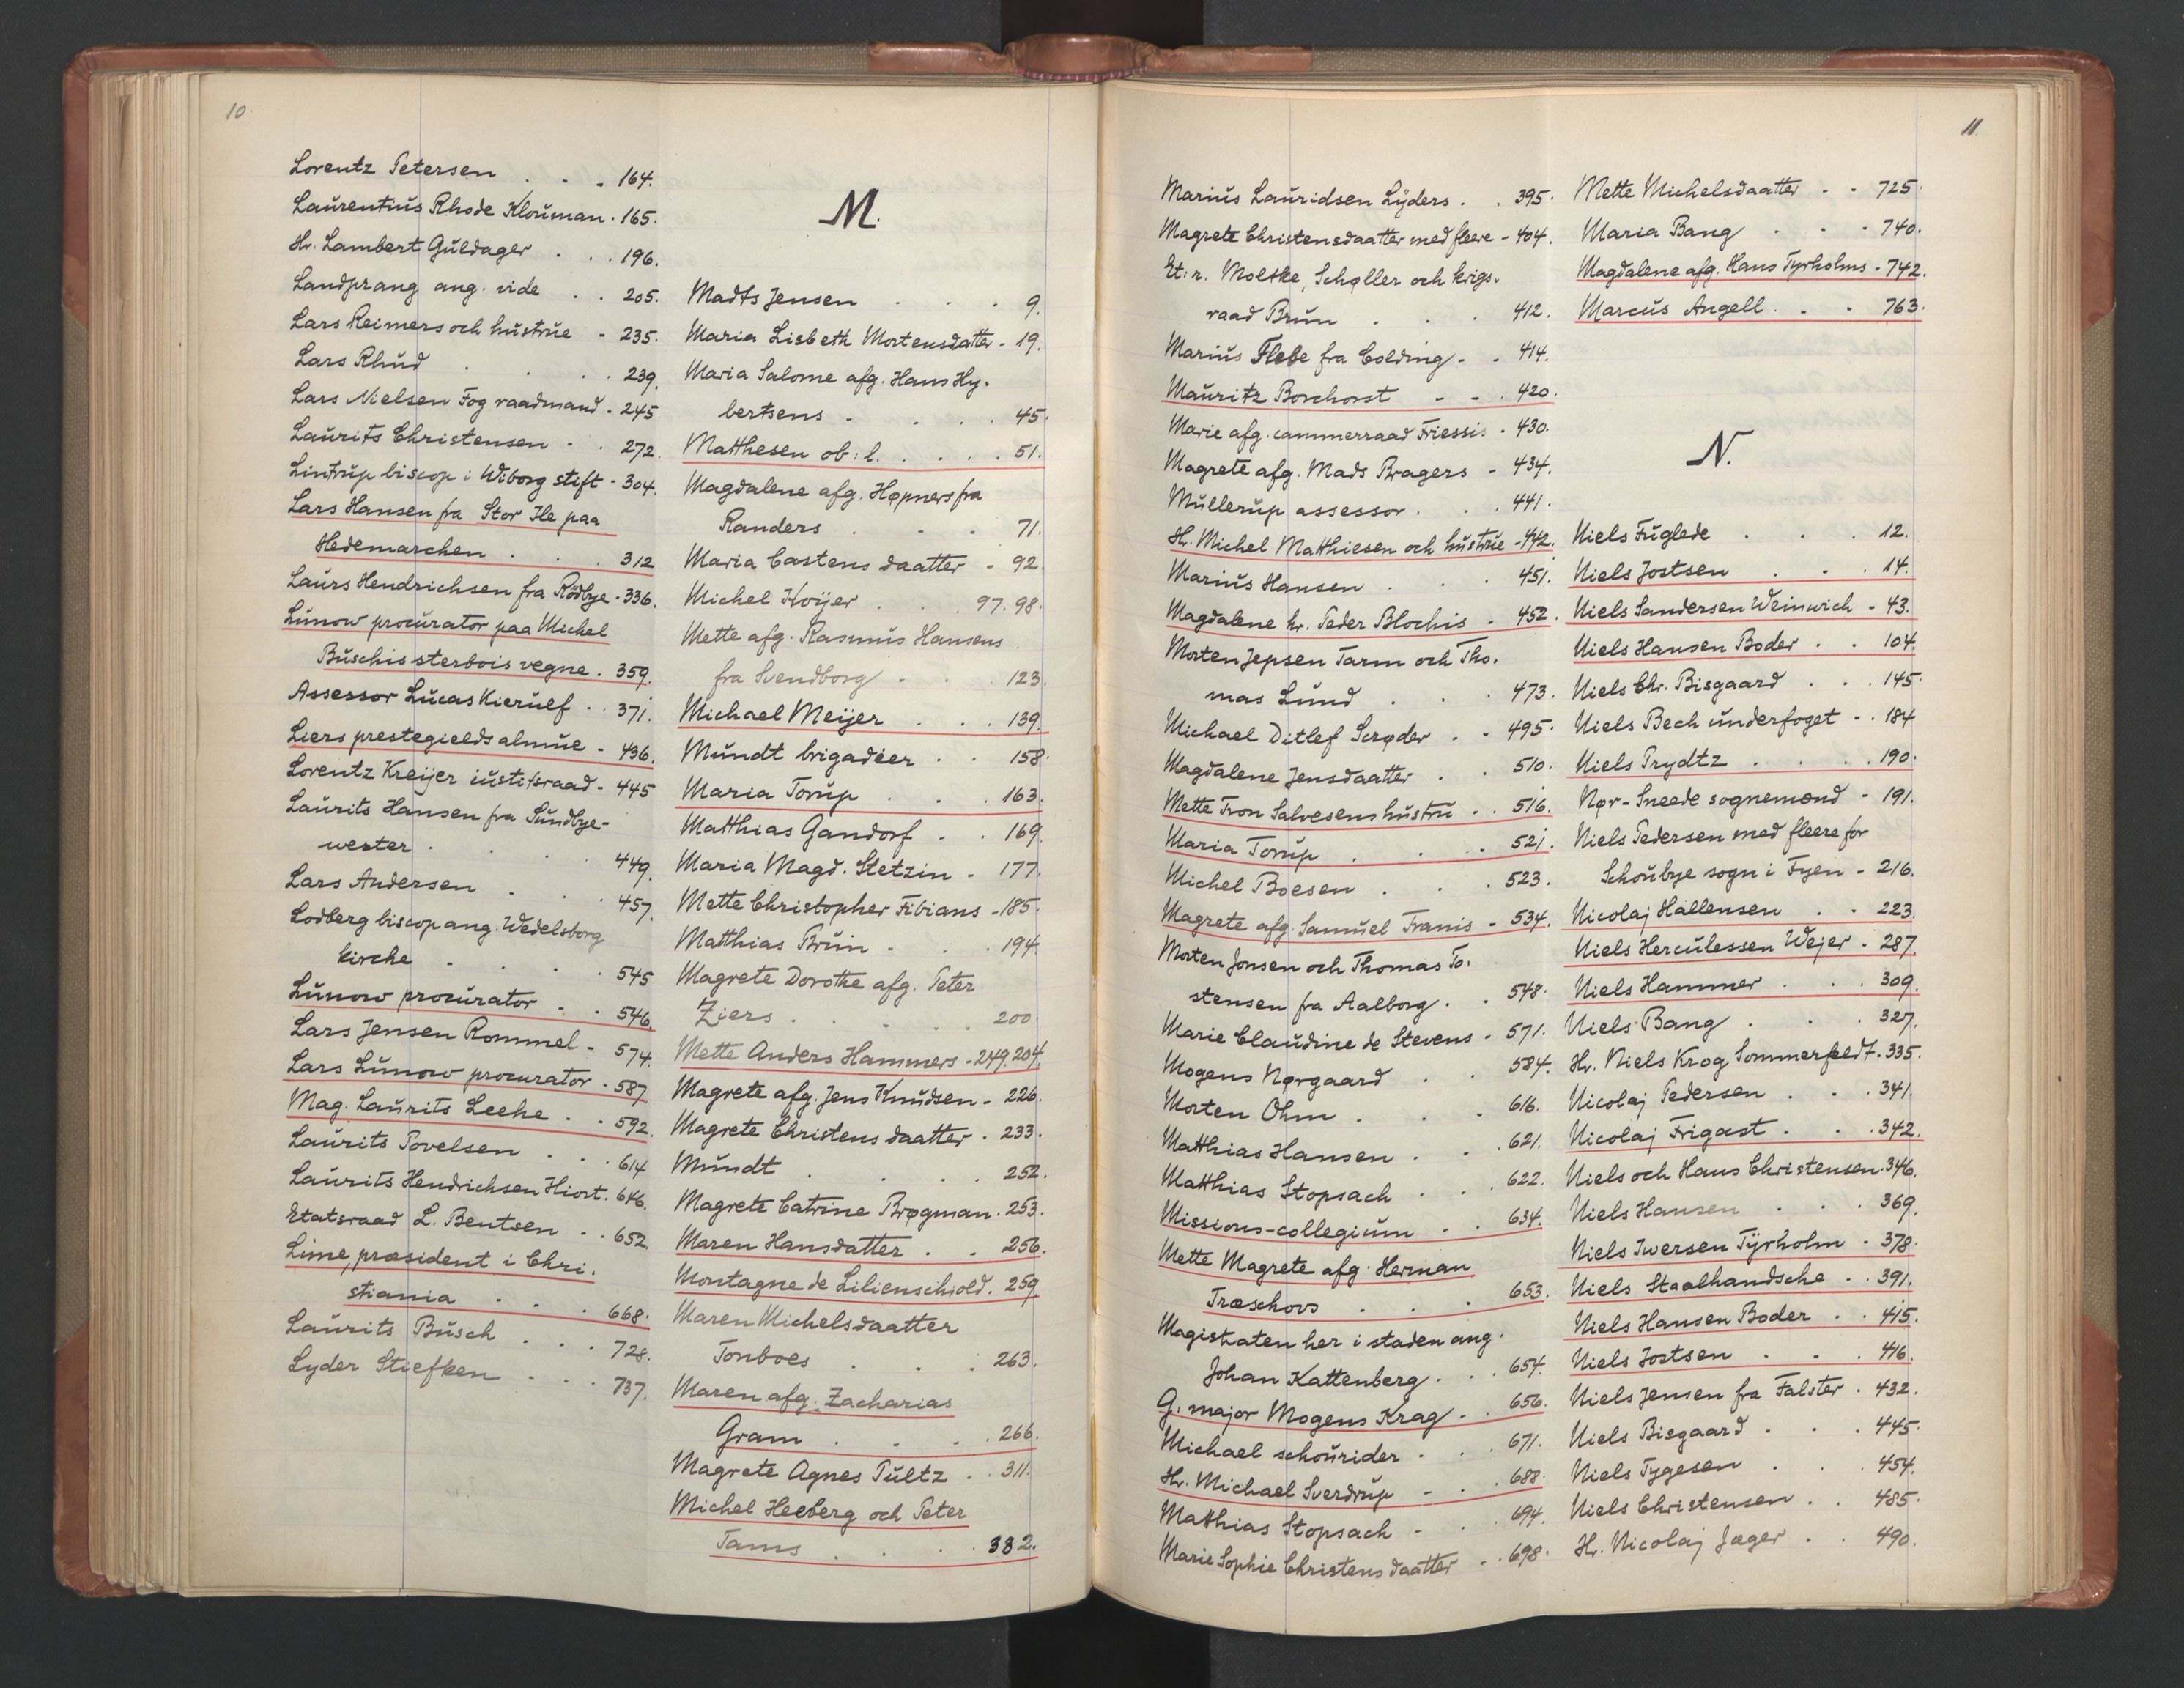 10.
Lorentz Petersen . . . 164.
Laurentius Rhode Klouman . 165.
Hr. Lambert Guldager . . . 196.
Landprang ang. vide . . 205.
Lars Reimers och hustrue - 235.
Lars Rhud . . . . 239.
Lars Nielsen Fog raadmand - 245
Laurits Christensen . . 272.
Lintrup biscop i Wiborg stift - 304.
Lars Hansen fra Stor Ile paa
Hedemarchen . . . 312
Laurs Hendrichsen fra Rødbye - 336.
Lunow procurator paa Michel
Buschis sterbois vegne . 359.
Assessor Lucas Kierulf . . 371.
Liers prestegields almue - 436.
Lorentz Kreijer iustitsraad - 445
Laurits Hansen fra Sundbye-
wester . . . . 449.
Lars Andersen . . . 457.
Lodberg biscop ang. Wedelsborg
kirche . . . . 545
Lunow procurator . . . 546.
Lars Jensen Rommel - 574.
Lars Lunow procurator - 587.
Mag. Laurits Leehe . . 592.
Laurits Povelsen . . . 614
Laurits Hendrichsen Hiort . 646.
Etatsraad L. Bentsen . . 652.
Lime, præsident i Chri-
stiania . . . . 668.
Laurits Busch . . . 728.
Lyder Stiefken . . . 737.
M.
Madts Jensen . . . 9.
Maria Lisbeth Mortensdatter - 19.
Maria Salome afg. Hans Hy-
bertsens . . . . 45.
Matthesen ob: l. . . . . 51.
Magdalene afg. Høpners fra
Randers . . . 71.
Maria Castens daatter - 92.
Michel Hoijer . . . 97. 98.
Mette afg. Rasmus Hansens
fra Svendborg . . . 123.
Michael Meijer . . . 139.
Mundt brigadeer . . 158.
Maria Torup . . . 163.
Matthias Gandorf . . 169.
Maria Magd. Stetzin - 177.
Mette Christopher Fibians - 185.
Matthias Brun . . . 194.
Magrete Dorothe afg. Peter
Ziers . . . . . 200.
Mette Anders Hammers - 249. 204.
Magrete afg. Jens Knudsen - 226.
Magrete Christens daatter . 233.
Mundt . . . . 252.
Magrete Catrine Brøgman . 253.
Maren Hansdatter . . 256.
Montagne de Lilienschiold . 259.
Maren Michelsdaatter
Tonboes . . . 263.
Maren afg. Zacharias
Gram . . . . 266.
Magrete Agnes Pultz . . 311.
Michel Heeberg och Peter
Tams . . . . 382.
11.
Marius Lauridsen Lÿders . . 395.
Magrete Christensdaatter med fleere - 404.
Et: r. Moltke, Schøller och krigs-
raad Brun . . . 412.
Marius Flebe fra Colding - - 414.
Mauritz Borchorst - - . 420.
Marie afg. cammerraad Friessis - 430.
Magrete afg. Mads Bragers - 434.
Mullerup assessor . . . 441.
Hr. Michel Matthiesen och hustrue - 442.
Marius Hansen . . . 451.
Magdalene hr. Peder Blochis - 452.
Morten Jepsen Tarm och Tho-
mas Lund . . . 473.
Michael Ditlef Scrøder . - 495.
Magdalene Jensdaatter . . 510.
Mette Tron Salvesens hustru . . 516.
Maria Torup . . . 521.
Michel Boesen . . . 523.
Magrete afg. Samuel Franis - 534.
Morten Jonsen och Thomas To-
stensen fra Aalborg . . 548.
Marie Claudine de Stevens - 571.
Mogens Nørgaard . . 584.
Morten Ohm . . . 616.
Matthias Hansen . . . 621.
Matthias Stopsach . . . 622.
Missions-collegium . . 634.
Mette Magrete afg. Herman
Træschovs . . . 653.
Magistraten her i staden ang.
Johan Kattenberg . . . 654.
G. major Mogens Krag - . 656.
Michael schourider . . . 671.
Hr. Michael Sverdrup - . . 688.
Matthias Stopsach - . . 694.
Marie Sophie Christens daatter - . 698.
Mette Michelsdaatter - - 725.
Maria Bang . . . 740.
Magdalene afg. Hans Tyrholms - 742.
Marcus Angell . . . 763.
N.
Niels Fuglede . . . 12.
Niels Jostsen . . . 14.
Niels Sandersen Weinwich - 43.
Niels Hansen Boder . . 104.
Niels Chr. Bisgaard . . . 145.
Niels Bech underfoget - . 184
Niels Prydtz . . . . 190.
Nør-Sneede sognemænd - 191.
Niels Pedersen med fleere for
Schoubye sogn i Fyen - 216.
Nicolaj Hallensen . . 223.
Niels Herculessen Wejer - 287.
Niels Hammer . . . 309.
Niels Bang . . . 327.
Hr. Niels Krog Sommerfeldt . 335.
Nicolaj Pedersen . . . 341.
Nicolaj Frigast . . . 342.
Niels och Hans Christensen . 346.
Niels Hansen . . . 369.
Niels Iwersen Tÿrholm - 378.
Niels Staalhandsche . . 391.
Niels Hansen Boder . . 415.
Niels Jostsen . . . 416.
Niels Jensen fra Falster . 432.
Niels Bisgaard . . . 445.
Niels Tygesen . . . 454.
Niels Christensen . . 485.
Hr. Nicolaj Jæger . . 490.